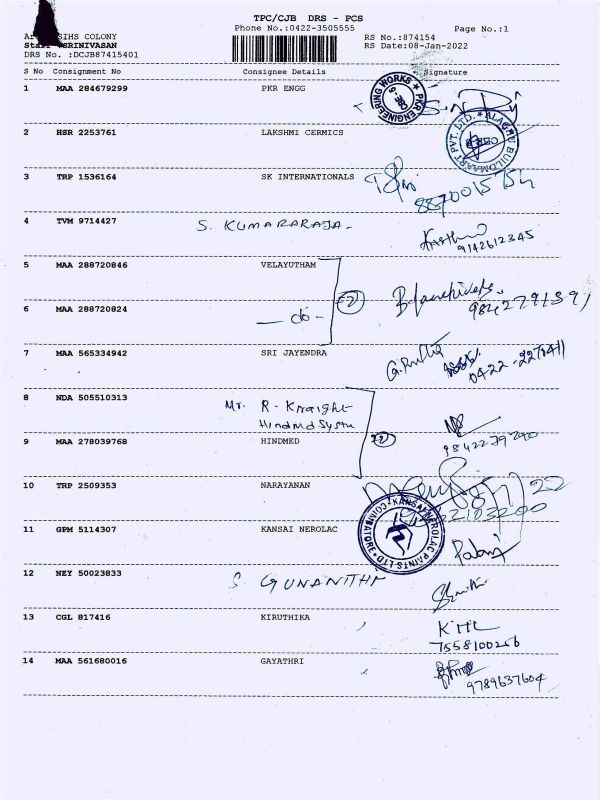 TPC/CJB DRS - PCS
Phone No.:0422-3505555
Page No.:1
SIHS COLONY
RS No.:874154
SRINIVASAN
RS Date:08-Jan-2022
DRS No. :DCJB87415401
S No Consignment No Consignee Details Signature
1 MAA 284679299 PKR ENGG
★ PKR ENGINEERING WORKS
CBE
2 HSR 2253761 LAKSHMI CERMICS
ALAGHU BUILDMART PVT. LTD. ★
3 TRP 1536164 SK INTERNATIONALS
4 TVM 9714427 S. KUMARARAJA-
9142612345
5 MAA 288720846 VELAYUTHAM
6 MAA 288720824 - do -
7 MAA 565334942 SRI JAYENDRA
8 NDA 505510313 Mr. R - Knaight
Hindmd System
9 MAA 278039768 HINDMED
9842279290
10 TRP 2509353 NARAYANAN
11 GPM 5114307 KANSAI NEROLAC
KANSAI NEROLAC PAINTS LTD
COIMBATORE
12 NEY 50023833 S GUNANITHI
13 CGL 817416 KIRUTHIKA
7558100256
14 MAA 561680016 GAYATHRI
9789637604